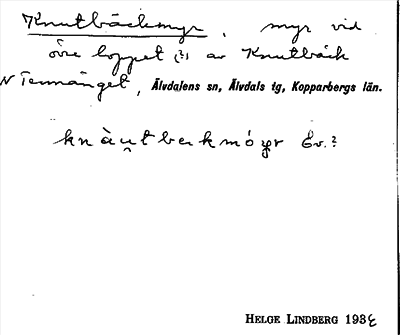 Knutbäckmyr, myr vid
övre loppet (?) av Knutbäck
N Tennänget, Älvdalens sn, Älvdals tg, Kopparbergs län.
knàu̯tbekmóyr Ev.?
HELGE LINDBERG 193